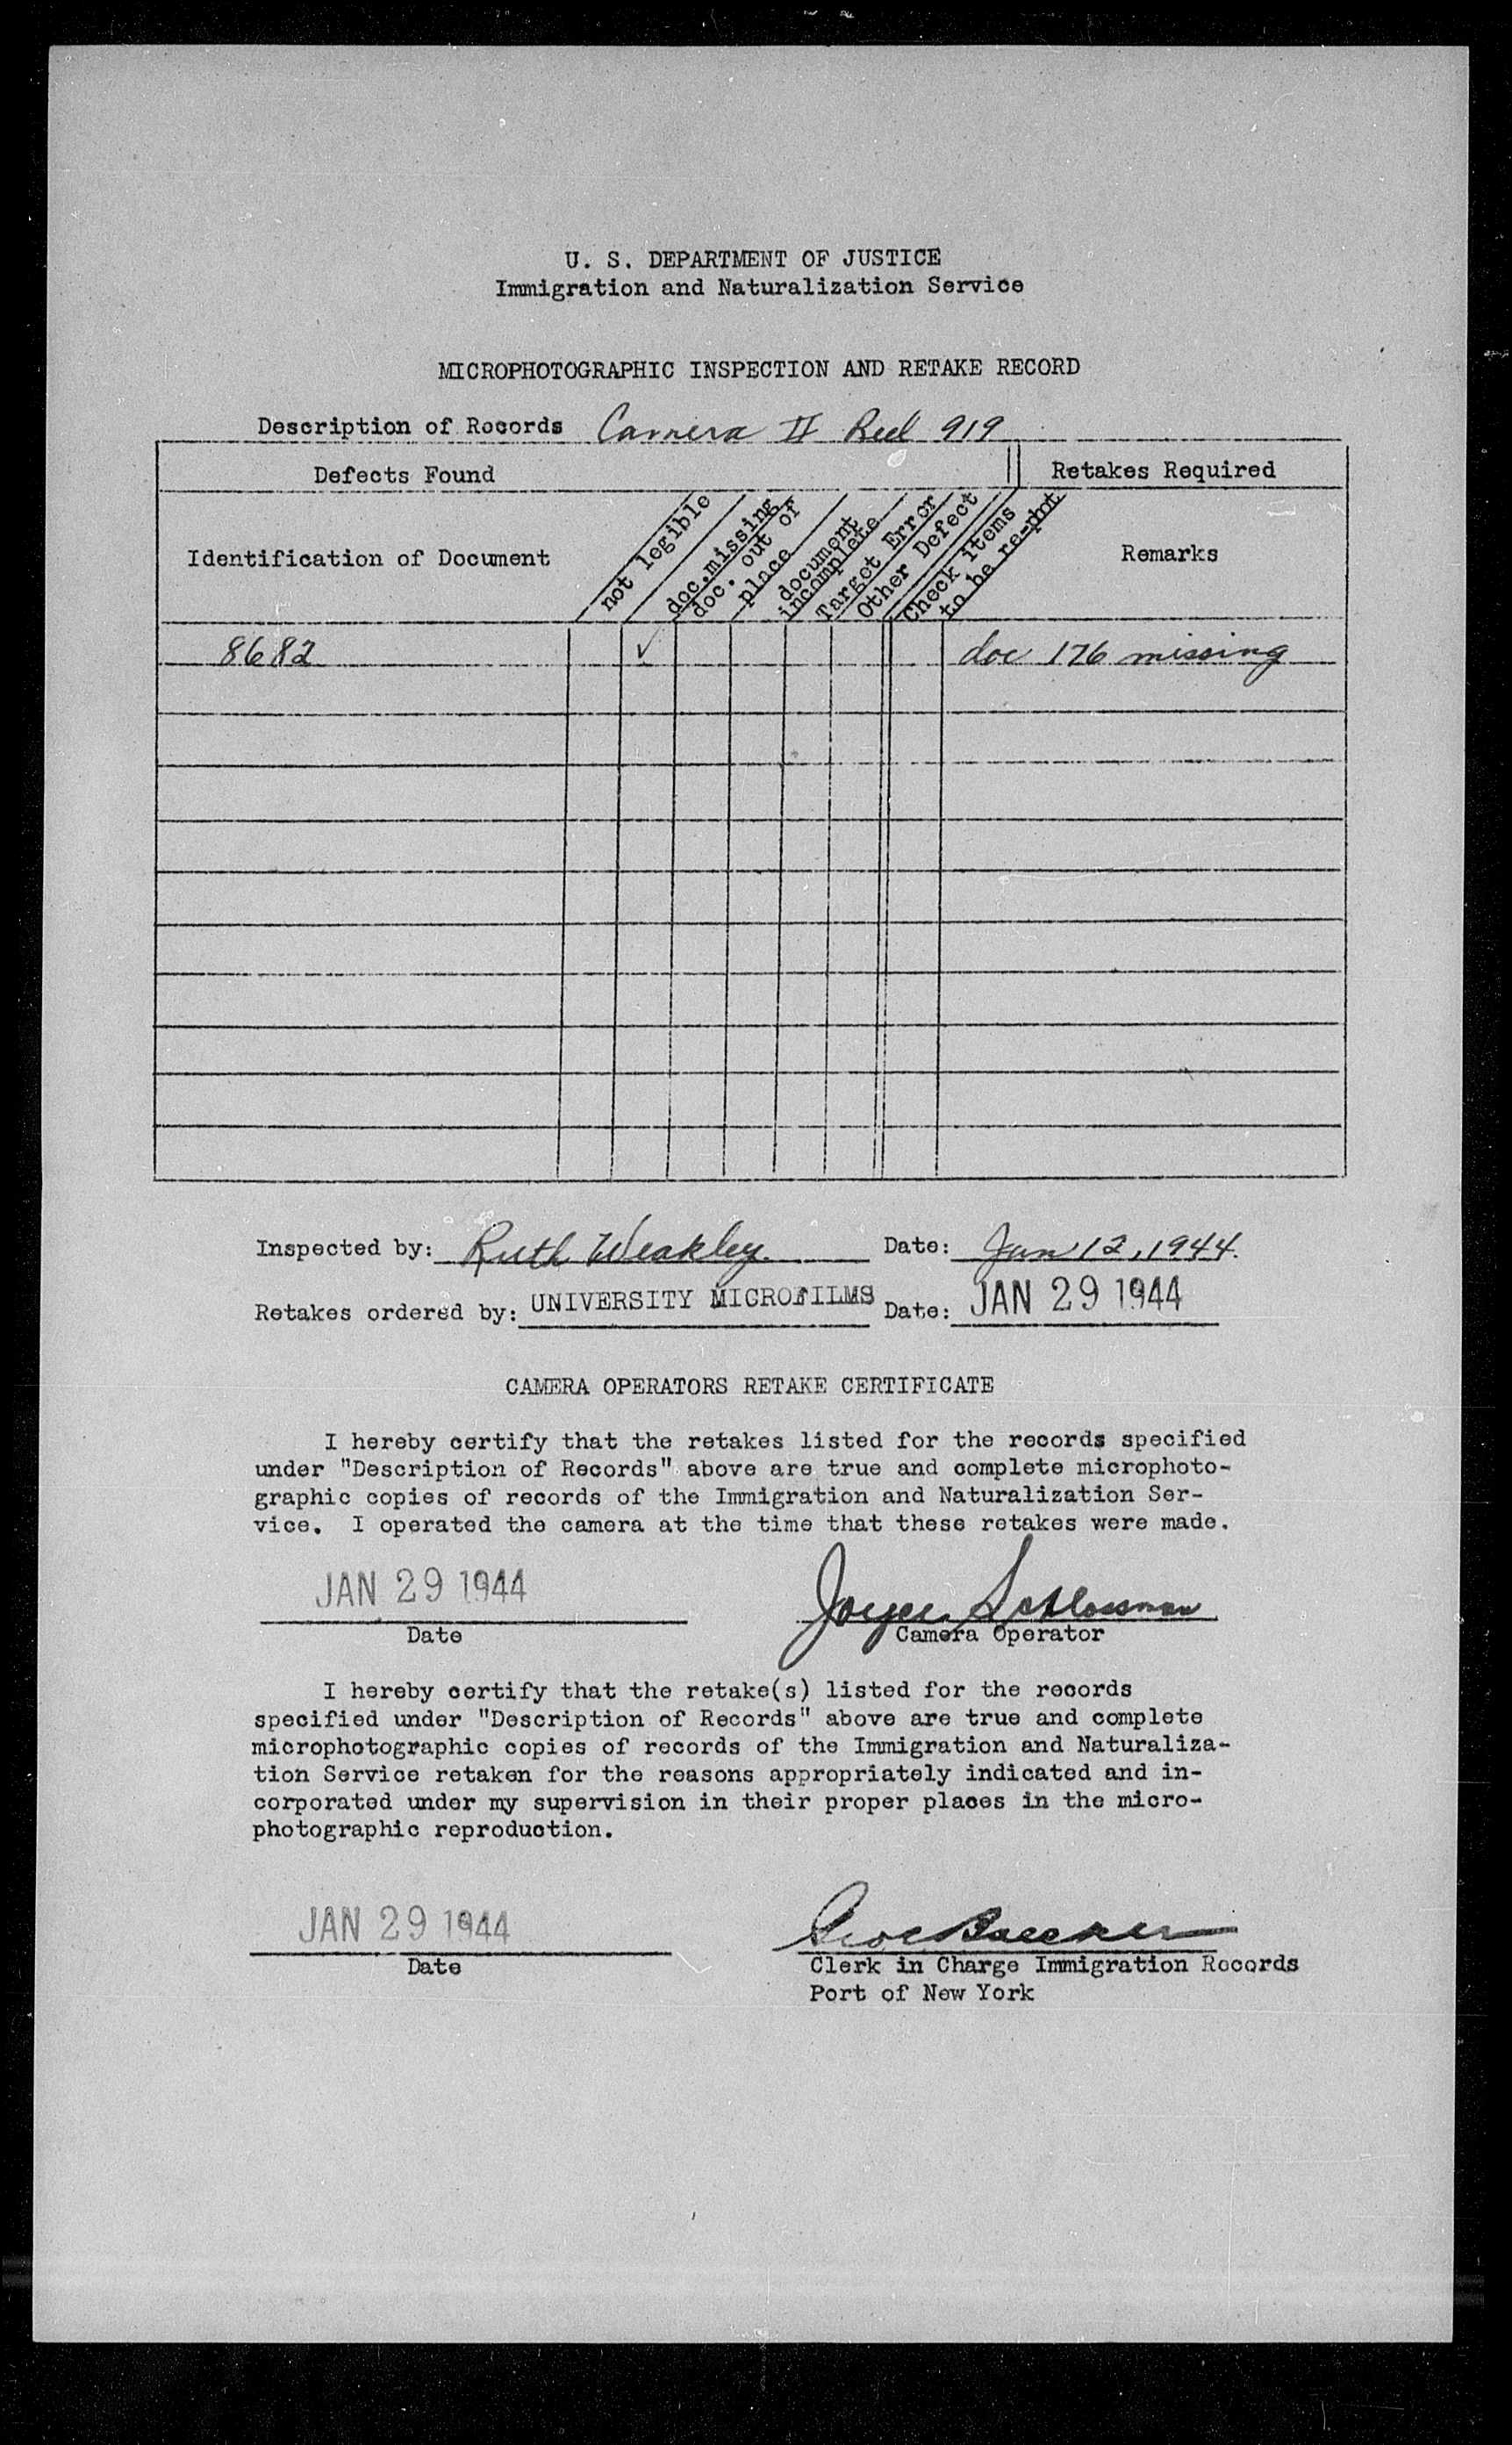 U. S. DEPARTMENT OF JUSTICE
Immigration and Naturalization Service
MICROPHOTOGRAPHIC INSPECTION AND RETAKE RECORD
Description of Records Camera II Reel 919
Defects Found
Retakes Required
Identification of Document
not legible
doc. missing
doc. out of
place
document
incomplete
Target Error
Other Defect
Check items
to be re-phot.
Remarks
8682 ✓ doc 176 missing
Inspected by: Ruth Weakley Date: Jan 12, 1944.
Retakes ordered by: UNIVERSITY MICROFILMS Date: JAN 29 1944
CAMERA OPERATORS RETAKE CERTIFICATE
I hereby certify that the retakes listed for the records specified
under "Description of Records" above are true and complete microphoto-
graphic copies of records of the Immigration and Naturalization Ser-
vice. I operated the camera at the time that these retakes were made.
JAN 29 1944 Joyce Schlossman
Date Camera Operator
I hereby certify that the retake(s) listed for the records
specified under "Description of Records" above are true and complete
microphotographic copies of records of the Immigration and Naturaliza-
tion Service retaken for the reasons appropriately indicated and in-
corporated under my supervision in their proper places in the micro-
photographic reproduction.
JAN 29 1944
Date Clerk in Charge Immigration Records
Port of New York